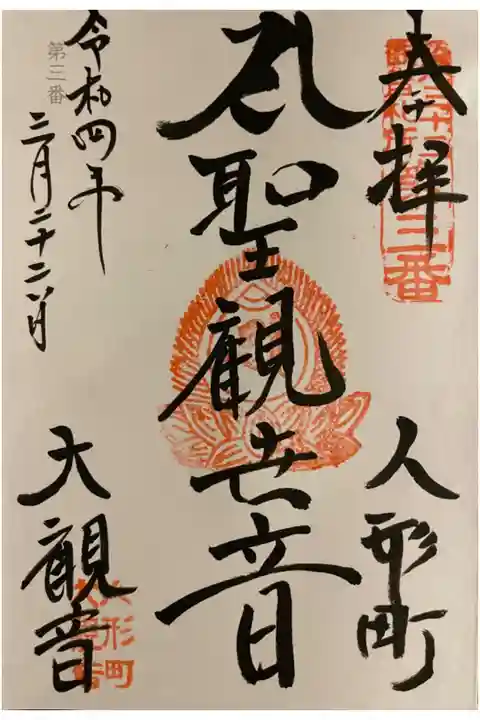 奉拝
三番
人形町
聖観世音
第三番
令和四年
三月二十二日
大観音
人形町